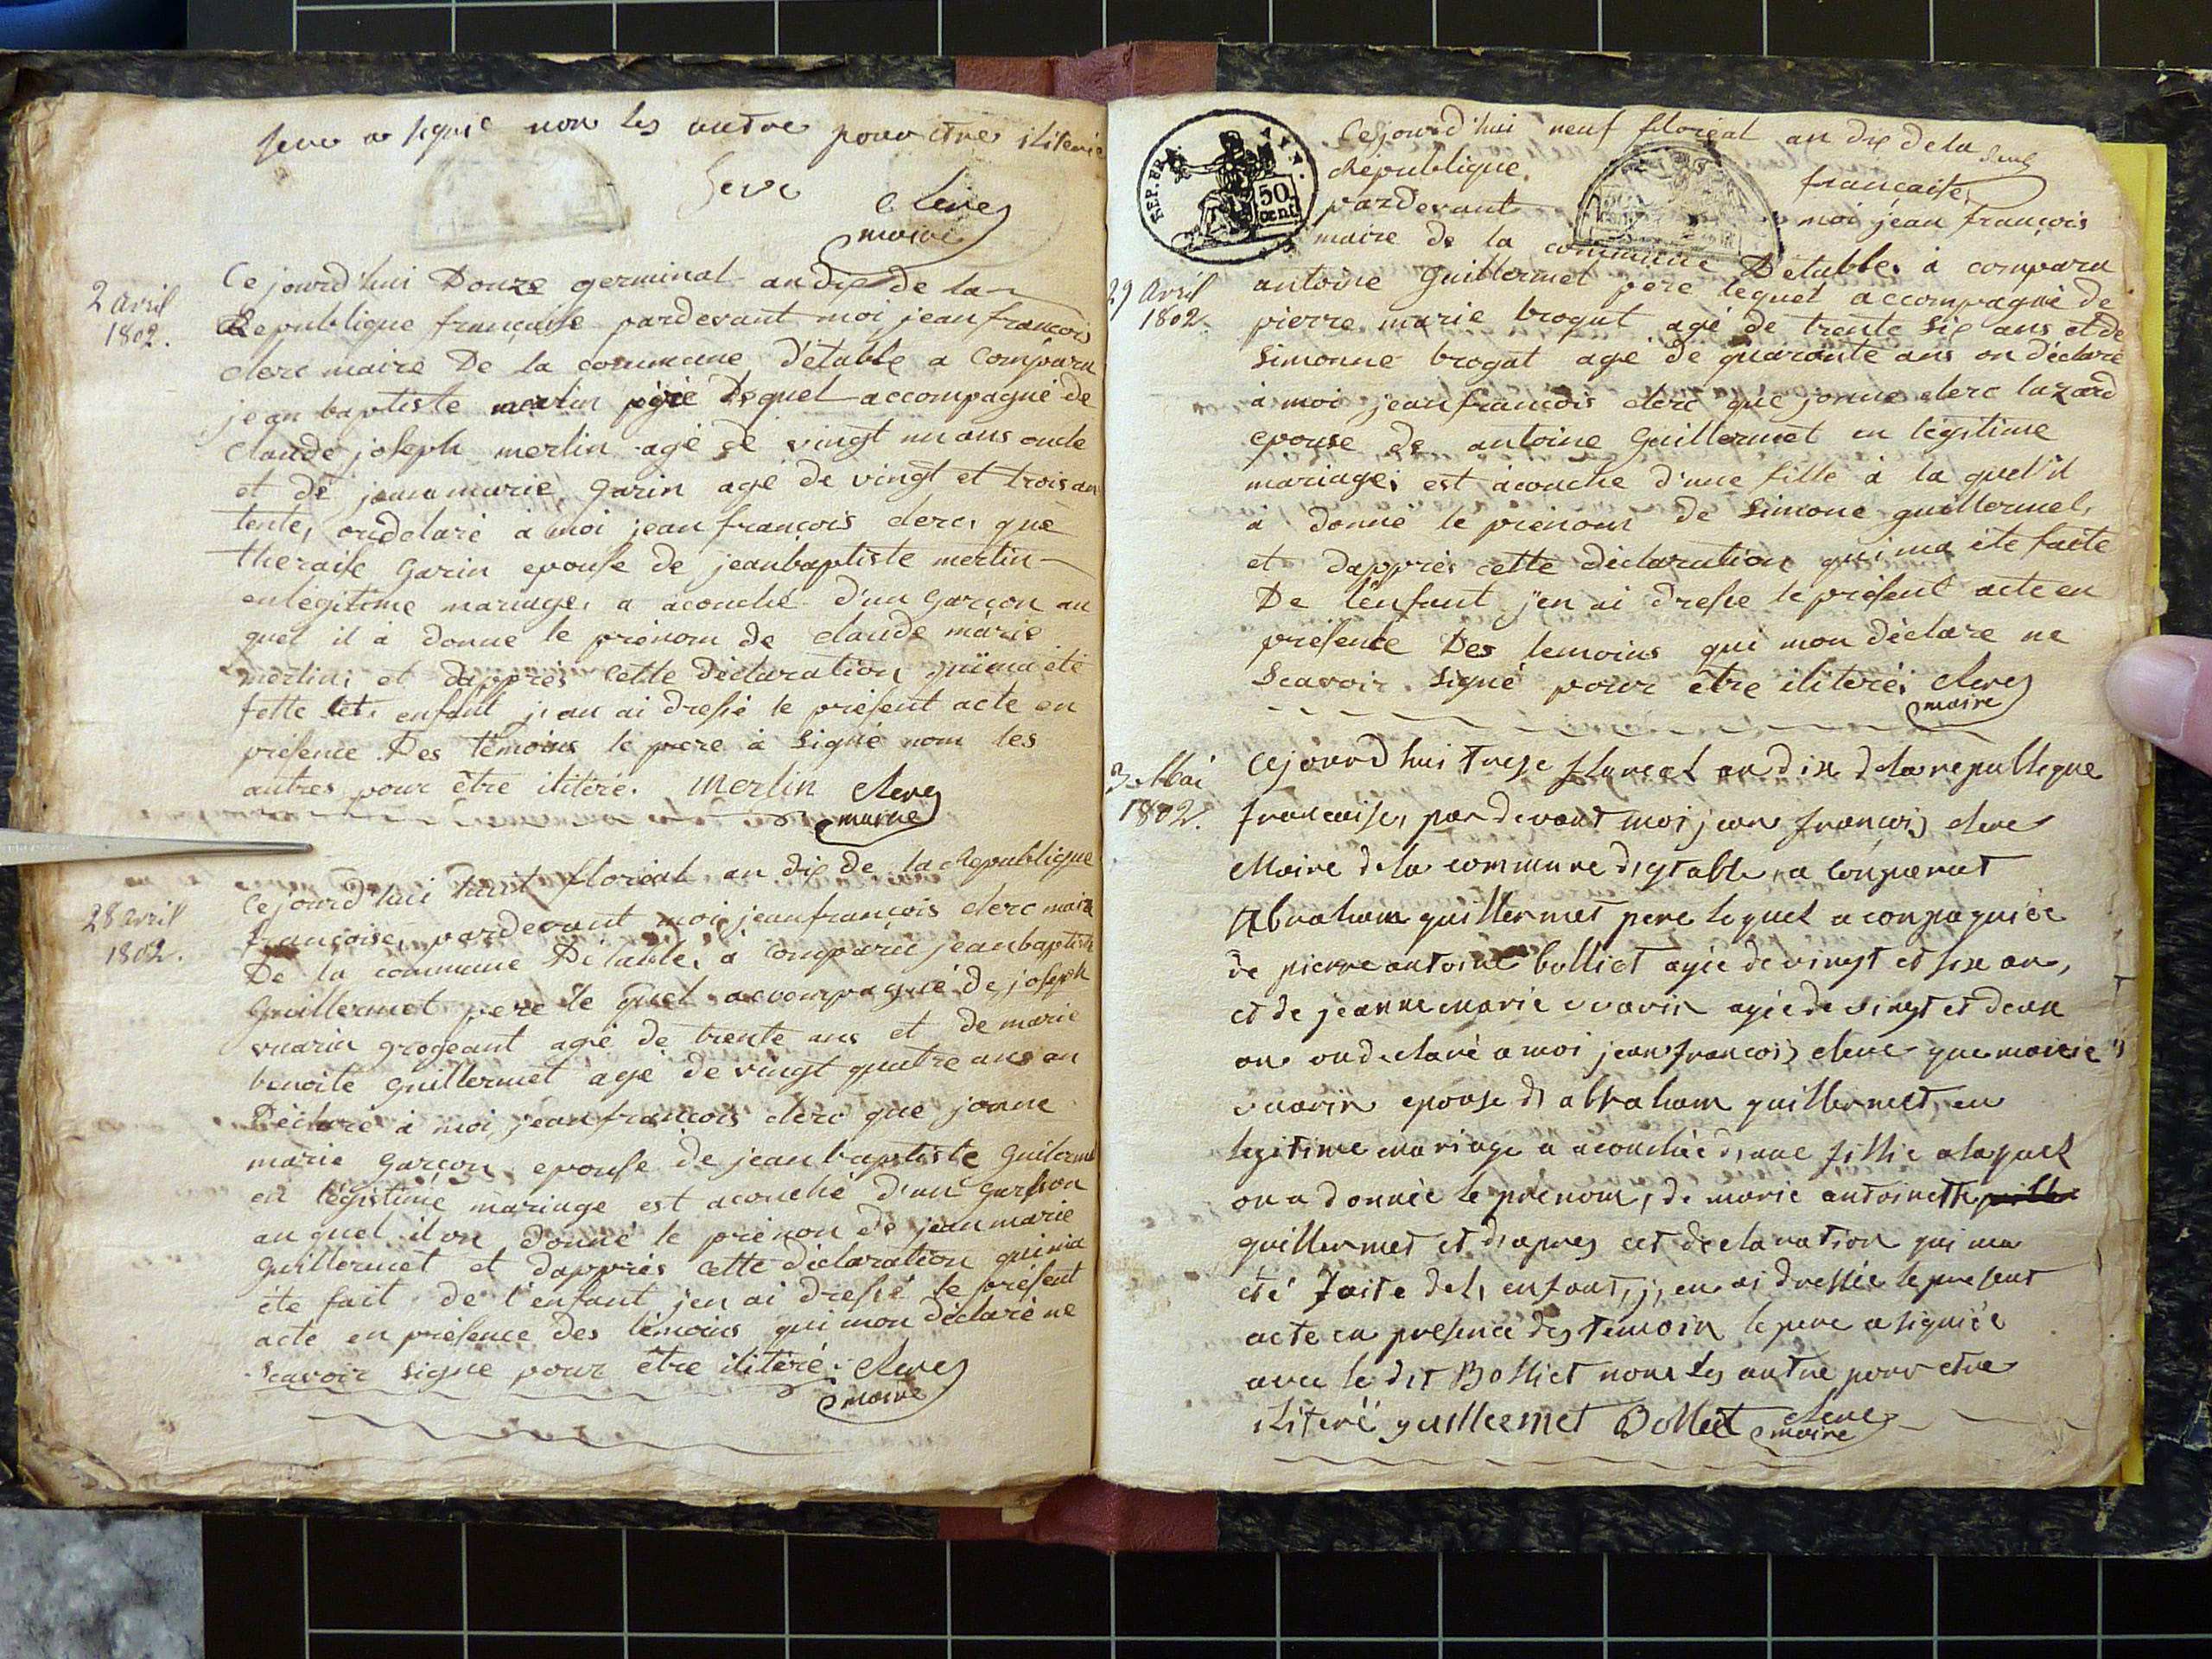 pere a signé non les autre pour etre iliteré
clerc
maire
2 avril
1802.
Cejourd'hui Douze germinal an dix de la
Republique française pardevant moi jean françois
clerc maire De la commune d'étable a Comparu
jean baptiste merlin pére lequel accompagné de
claude joseph merlin agé de vingt un ans oncle
et de jeanne marie garin agé de vingt et trois an
tente, ondelaré à moi jean françois clerc, que
theraise garin epouse de jeanbaptiste merlin
enlegitime mariage, a acouché d'un garçon au
quel il à donne le prénom de claude marie
merlin; et dapprés cette Déclaration quima été
fette enfant j'an ai dressé le présent acte en
présence Des témoins le pere à signé nom les
autres pour être ilitéré. merlin clerc
maire
28 avril
1802.
Cejourd'hui huit floréal an dix De la Republique
françoise, pardevant moi jeanfrançois clerc maire
De la commune Détable, à comparu jeanbaptiste
guillermet pere le quel accompagné de joseph
vuarin grogeant agé de trente ans et de marie
benoite guillermet agé de vingt quatre ans an
Déclaré à moi jeanfrancois clerc que jeanne
marie garçon epouse de jeanbaptiste Guilermet
en légistime mariage est acouché d'un garsson
auquel ilon donné le prénon de jean marie
guillermet et dapprés cette déclaration quima
éte fait de l'enfant jen ai dressé le présent
acte en présence des témoins qui mon déclaré ne
scavoir signe pour être ilitéré. clerc
maire
REP. FRA.
50
cent
Cejourd'hui neuf floréal an dix de la
République française,
pardevant moi jean françois
maire de la commune D'étable, à comparu
29 avril
1802.
antoine Guillermet pere lequel accompagné de
pierre marie brogat agé de trente six ans et de
simonne brogat agé de quarante ans on déclaré
à moi jeanfrancois clerc que jeanne clerc lazard
epouse de antoine Guillermet en legitime
mariage; est acouche d'une fille à la quel'il
à donné le prenom de Simone guillermet,
et dapprés cette déclaration quima éte faite
De l'enfant j'en ai dresse le présent acte en
présence Des temoins qui mon déclare ne
Scavoir Signé pour être ilitéré; clerc
maire
3 Mai
1802.
Cejourd hui treze floreal an dix dela republique
francaise, par devant moi jean françois clerc
Maire dela commune detable, a conparut
Abraham guillermet pere lequel aconpagniée
de pierre antoine bolliet agée de vingt et six an,
et de jeanne marie vuarin agée de vingt et deux
an ondeclaré a moi jean francois clerc que marie
vuarin epouse d abraham guillermet, en
legitime mariage a acouchée d'une fillie alaquel
on a donnée le prénom, de marie antoinette
guillermet et d'apres cet declaration qui ma
eté faite del, enfant, j, en ai dressée le present
acte en presence des temoin le pere a signiée
avec le dit Bolliet nom les autre pour etre
iliteré guillermet Bolliet clerc
maire